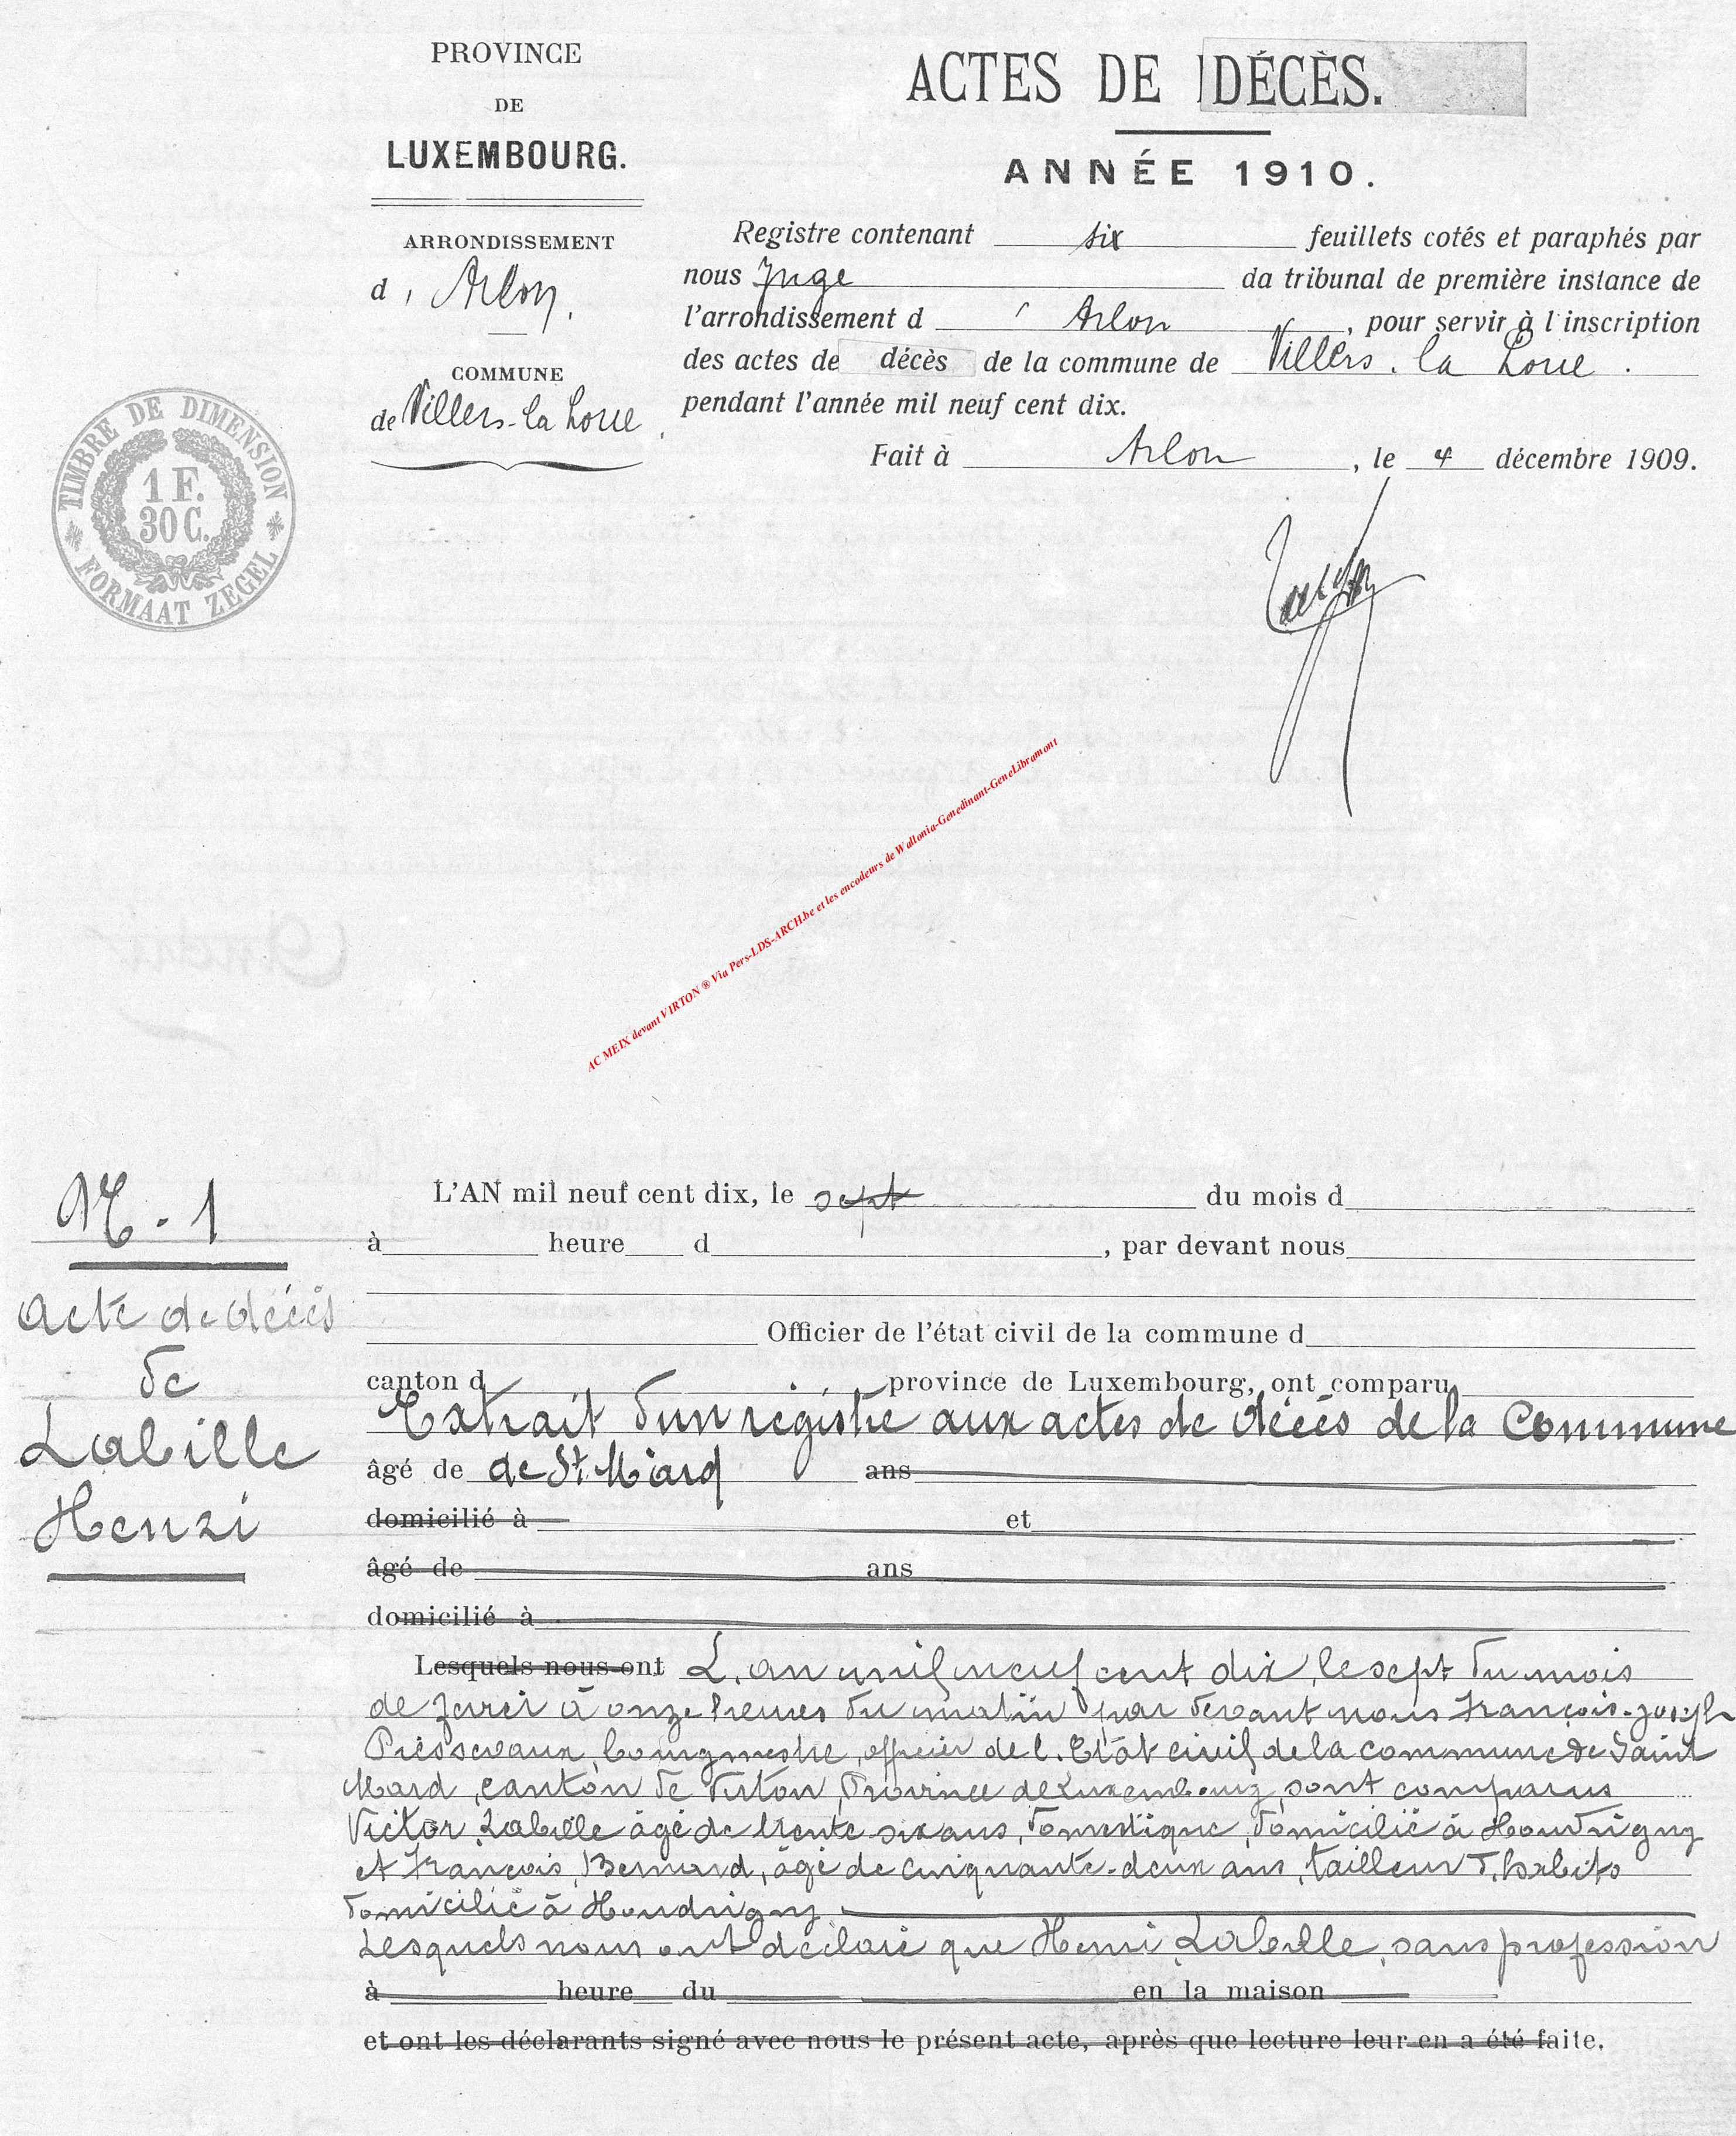 PROVINCE
DE
LUXEMBOURG.
ARRONDISSEMENT
d' Arlon.
COMMUNE
de Villers-la Loue
TIMBRE DE DIMENSION
1 F.
30 C.
FORMAAT ZEGEL
ACTES DE DÉCÈS.
ANNÉE 1910.
Registre contenant six feuillets cotés et paraphés par
nous Juge da tribunal de première instance de
l'arrondissement d ' Arlon, pour servir à l'inscription
des actes de décès de la commune de Villers. la Loue.
pendant l'année mil neuf cent dix.
Fait à Arlon, le 4 décembre 1909.
AC MEIX devant VIRTON ® Via Pers-LDS-ARCH.be et les encodeurs de Wallonia-Genedinant-GeneLibramont
N. 1
acte de décès
de
Labille
Henri
L'AN mil neuf cent dix, le sept du mois d
à heure d , par devant nous
Officier de l'état civil de la commune d
canton d province de Luxembourg, ont comparu
Extrait d'un registre aux actes de décès de la Commune
âgé de de St. Mard ans
domicilié à et
âgé de ans
domicilié à
Lesquels nous ont L'an mil neuf cent dix, le sept du mois
de à onze heures du matin par devant nous François-Joseph
bourgmestre, officier de l'Etat civil de la commune de Saint
Mard, canton de Virton, Province de Luxembourg, sont comparus
Victor Labille âgé de trente six ans, domestique, domicilié à Houdrigny
et François, Bernard, âgé de cinquante-deux ans, tailleur d'habits
domicilié à Houdrigny.
Lesquels nous ont déclaré que Henri Labille, sans profession
à heure du en la maison
et ont les déclarants signé avec nous le présent acte, après que lecture leur en a été faite.